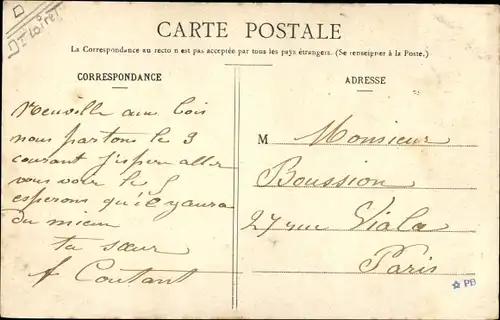 Dt Loiret
CARTE POSTALE
La Correspondance au recto n'est pas acceptée par tous les pays étrangers. (Se renseigner à la Poste.)
CORRESPONDANCE
ADRESSE
Neuville aux bois
nous partons le 3
courant j'espere aller
vous voir le 5
esperons qu'il y aura
du mieux
ta sœur
f Coutant
M Monsieur
Boussion
27 rue Viala
Paris
PB